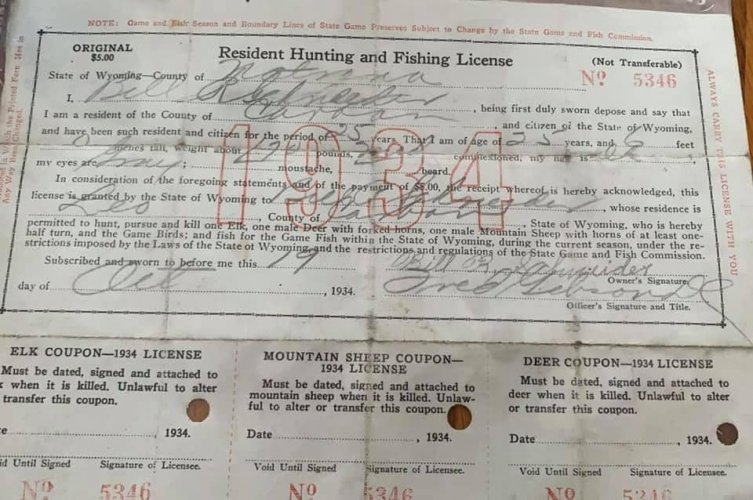 NOTE: Game and Elk Season and Boundary Lines of State Game Preserves Subject to Change by the State Game and Fish Commission.
ORIGINAL
$5.00
Resident Hunting and Fishing License
(Not Transferable)
State of Wyoming—County of Natrona
Nº 5346
I, Bill Schneider, being first duly sworn depose and say that
I am a resident of the County of and citizen of the State of Wyoming,
and have been such resident and citizen for the period of 25 years. That I am of age of 25 years, and feet
inches tall, weight about pounds, complexioned, my
my eyes are Gray, moustache, beard.
In consideration of the foregoing statements and of the payment of $5.00, the receipt whereof is hereby acknowledged, this
license is granted by the State of Wyoming to Schneider, whose residence is
Leo, County of, State of Wyoming, who is hereby
permitted to hunt, pursue and kill one Elk, one male Deer with forked horns, one male Mountain Sheep with horns of at least one-
half turn, and the Game Birds; and fish for the Game Fish within the State of Wyoming, during the current season, under the re-
strictions imposed by the Laws of the State of Wyoming, and the restrictions and regulations of the State Game and Fish Commission.
Subscribed and sworn to before me this 19 Bill Schneider
Owner's Signature.
day of Oct, 1934. Fred
Officer's Signature and Title.
1934
ALWAYS CARRY THIS LICENSE WITH YOU
ELK COUPON—1934 LICENSE
Must be dated, signed and attached to
when it is killed. Unlawful to alter
transfer this coupon.
, 1934.
Void Until Signed Signature of Licensee.
Nº 5346
MOUNTAIN SHEEP COUPON—
1934 LICENSE
Must be dated, signed and attached to
mountain sheep when it is killed. Unlaw-
ful to alter or transfer this coupon.
Date, 1934.
Void Until Signed Signature of Licensee.
Nº 5346
DEER COUPON—1934 LICENSE
Must be dated, signed and attached to
deer when it is killed. Unlawful to alter
or transfer this coupon.
Date, 1934.
Void Until Signed Signature of Licensee.
Nº 5346